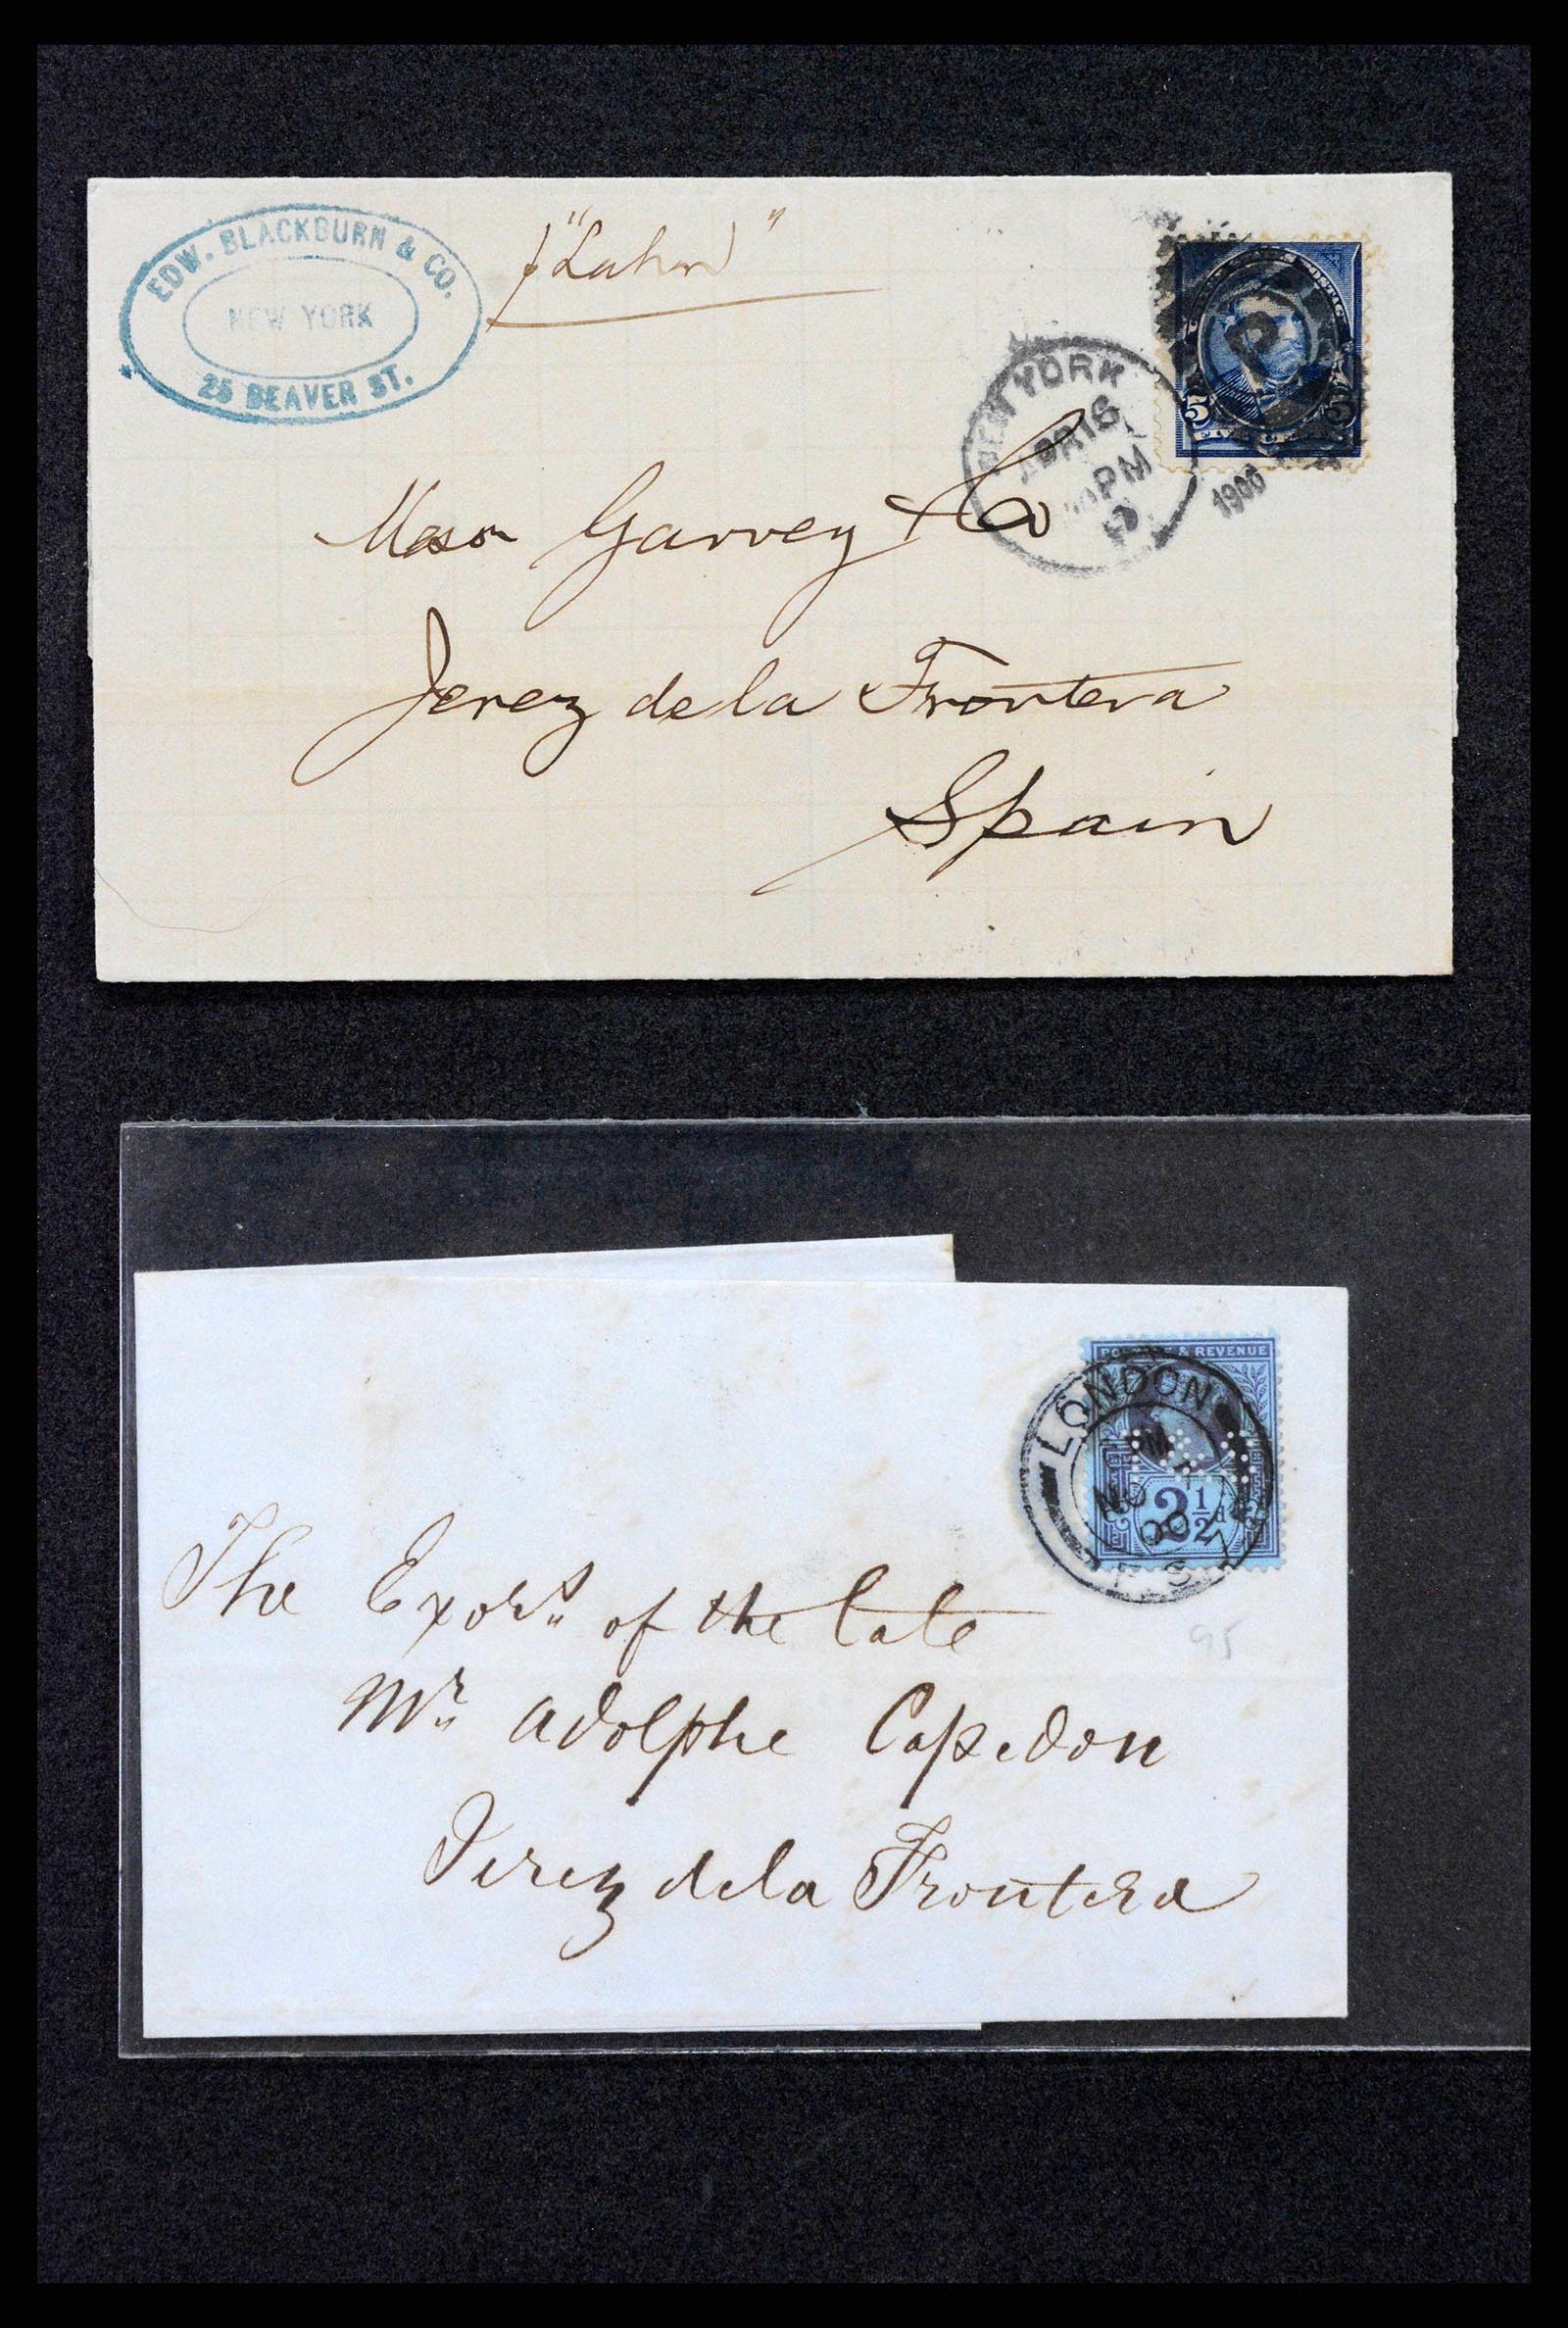 EDW. BLACKBURN & CO.
NEW YORK
25 BEAVER ST.
p "Lahn"
NEW YORK
APR 16
PM
1900
P
5 5
FIVE CE
Messrs Garvey & Co
Jerez de la Frontera
Spain
POSTAGE & REVENUE
LONDON
NO
00
F.S.
2½d
The Exors of the late
95
Mr Adolphe Capdedon
Jerez de la Frontera